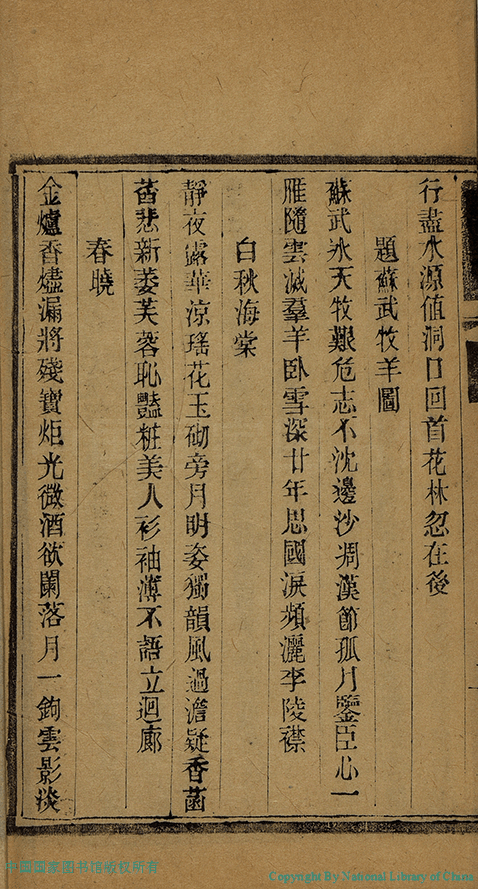 行盡水源值洞口回首花林忽在後
題蘇武牧羊圖
蘇武氷天牧艱危志不沈邊沙凋漢節孤月鑒臣心一
雁隨雲滅羣羊卧雪深廿年思國淚頻灑李陵襟
白秋海棠
靜夜露華涼瑤花玉砌旁月明姿獨韻風過澹疑香菡
萏悲新萎芙蓉恥豔粧美人衫袖薄不語立迴廊
春曉
金爐香燼漏將殘寶炬光微酒欲闌落月一鉤雲影淡
中国国家图书馆版权所有
Copyright By National Library of China